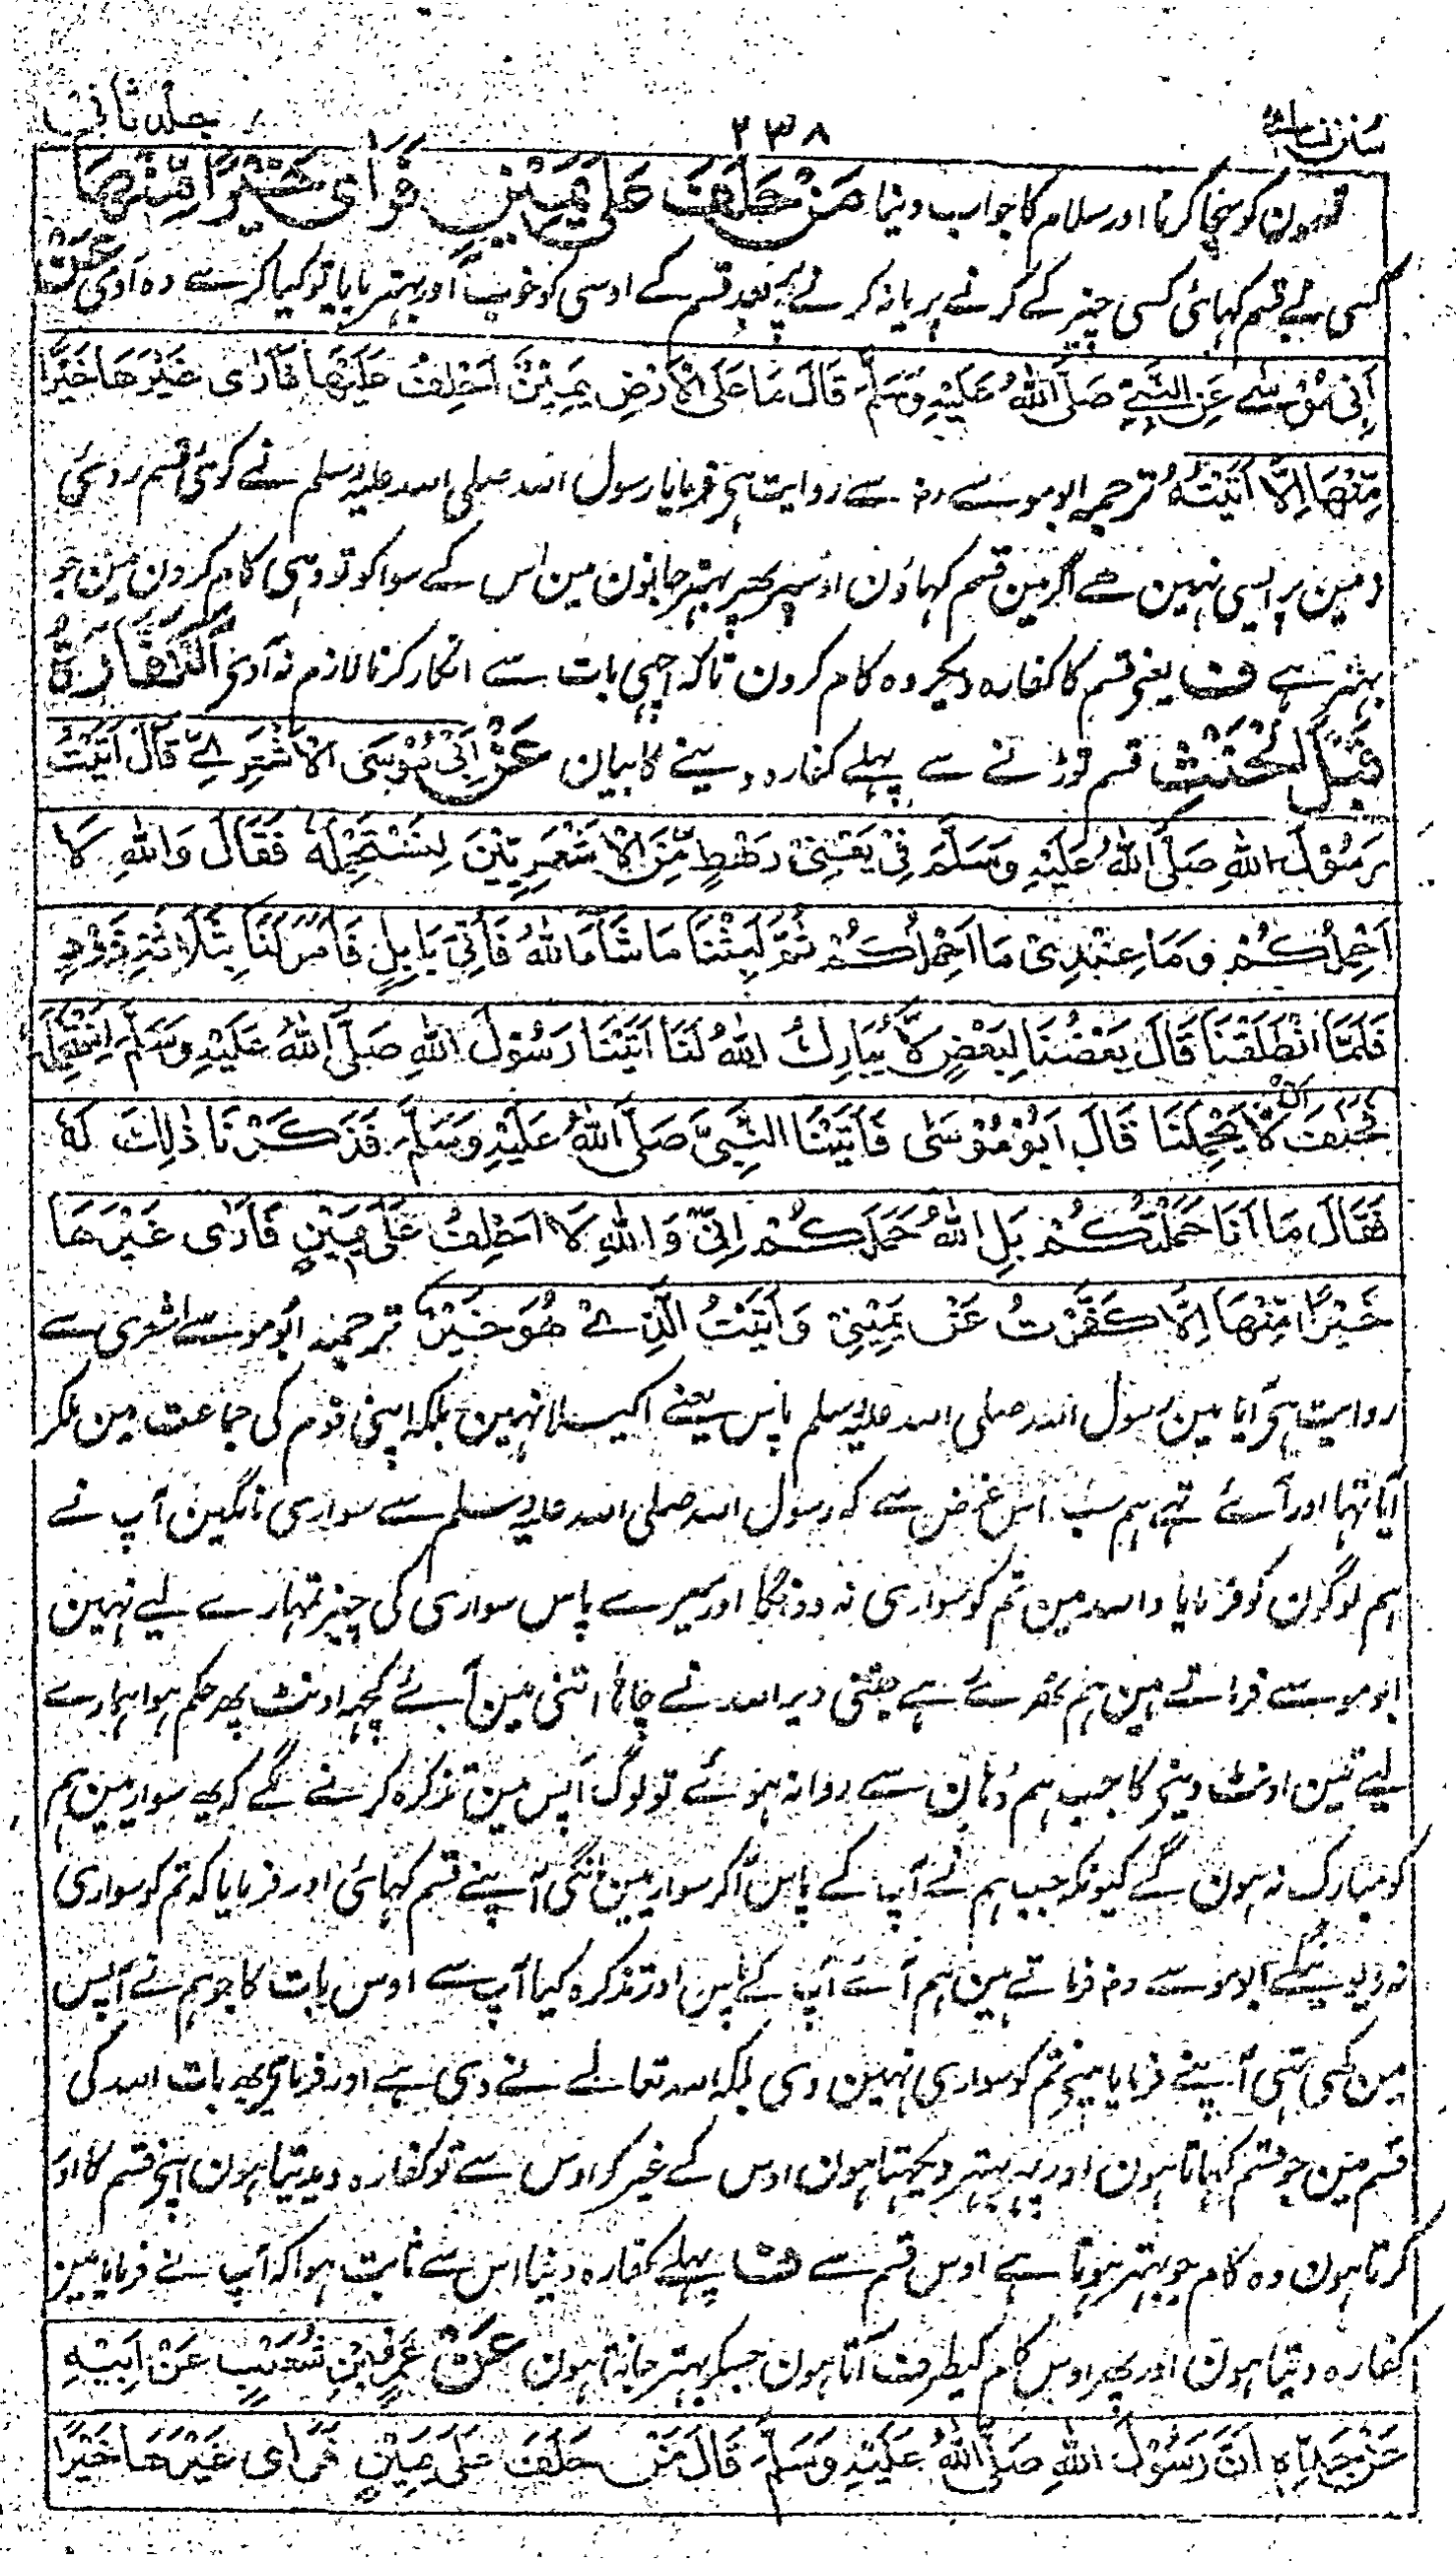 سنن نسائی ۲۳۸ جلد ثانی
قسمون کو سچا کرنا اور سلام کا جواب دینا مَنْ حَلَفَ عَلٰى يَمِيْنٍ فَرَاٰى خَيْرًا مِّنْهَا
کسی نے قسم کہائی کسی چیز کے کرنے پر یا نہ کرنے پر بعد قسم کے اوسی کو خوب اور بہتر پایا تو کیا کرے وہ آدمی عَنْ
اَبِيْ مُوْسٰے عَنِ النَّبِيِّ صَلَّى اللّٰهُ عَلَيْهِ وَسَلَّمَ قَالَ مَا عَلَى الْاَرْضِ يَمِيْنٌ اَحْلِفُ عَلَيْهَا فَاَرٰى غَيْرَهَا خَيْرًا
مِّنْهَا اِلَّا اَتَيْتُهٗ ترجمہ ابو موسے رض سے روایت ہی فرمایا رسول اللہ صلی اللہ علیہ وسلم نے کوئی قسم روئی
زمین پر ایسی نہین ہے اگر مین قسم کہاؤن اوسپر پھر بہتر جانون مین اس کے سوا کو تو وہی کام کرون مین جو
بہتر ہے ف یعنی قسم کا کفارہ دیکر وہ کام کرون تاکہ اچہی بات سے انکار کرنا لازم نہ آوی اَلْكَفَّارَةُ
قَبْلَ الْحِنْثِ قسم توڑنے سے پہلے کفارہ دینے کا بیان عَنْ اَبِيْ مُوْسَى الْاَشْعَرِيِّ قَالَ اَتَيْتُ
رَسُوْلَ اللّٰهِ صَلَّى اللّٰهُ عَلَيْهِ وَسَلَّمَ فِيْ يَعْنِيْ رَهْطٍ مِّنَ الْاَشْعَرِيِّيْنَ نَسْتَحْمِلُهٗ فَقَالَ وَاللّٰهِ لَا
اَحْمِلُكُمْ وَمَا عِنْدِيْ مَا اَحْمِلُكُمْ ثُمَّ لَبِثْنَا مَا شَاءَ اللّٰهُ فَاُتِيَ بِاِبِلٍ فَاَمَرَ لَنَا بِثَلَاثَةِ ذَوْدٍ
فَلَمَّا انْطَلَقْنَا قَالَ بَعْضُنَا لِبَعْضٍ لَا يُبَارِكُ اللّٰهُ لَنَا اَتَيْنَا رَسُوْلَ اللّٰهِ صَلَّى اللّٰهُ عَلَيْهِ وَسَلَّمَ نَسْتَحْمِلُهٗ
فَحَلَفَ اَنْ لَّا يَحْمِلَنَا قَالَ اَبُوْ مُوْسٰى فَاَتَيْنَا النَّبِيَّ صَلَّى اللّٰهُ عَلَيْهِ وَسَلَّمَ فَذَكَرْنَا ذٰلِكَ لَهٗ
فَقَالَ مَا اَنَا حَمَلْتُكُمْ بَلِ اللّٰهُ حَمَلَكُمْ اِنِّيْ وَاللّٰهِ لَا اَحْلِفُ عَلٰى يَمِيْنٍ فَاَرٰى غَيْرَهَا
خَيْرًا مِّنْهَا اِلَّا كَفَّرْتُ عَنْ يَمِيْنِيْ وَاَتَيْتُ الَّذِيْ هُوَ خَيْرٌ ترجمہ ابو موسے اشعری سے
روایت ہی آیا مین رسول اللہ صلی اللہ علیہ وسلم پاس یعنے اکیلا نہین بلکہ اپنی قوم کی جماعت مین ملکر
آیا تہا اور آئے تہے ہم سب اس غرض سے کہ رسول اللہ صلی اللہ علیہ وسلم سے سواری مانگین آپ نے
ہم لوگون کو فرمایا واللہ مین تم کو سواری نہ دونگا اور میرے پاس سواری کی چیز تمہارے لیے نہین
ابو موسے فرماتے ہین ہم ٹھرے رہے جتنی دیر اللہ نے چاہا اتنی مین آئے کچہہ اونٹ پھر حکم ہوا ہمارے
لیے تین اونٹ دینے کا جب ہم وہان سے روانہ ہوئے تو لوگ آپس مین تذکرہ کرنے لگے کہ یہ سوارین ہم
کو مبارک نہ ہون گے کیونکہ جب ہم نے آپ کے پاس آکر سوارین مانگی آپنے قسم کہائی اور فرمایا کہ تم کو سواری
نہ دینگے ابو موسے رض فرماتے ہین ہم آئے آپ کے پاس اور تذکرہ کیا آپ سے اوس بات کا جو ہم نے آپس
مین کہی تہی آپنے فرمایا مینے تم کو سواری نہین دی بلکہ اللہ تعالے نے دی ہے اور فرمایا یہ بات اللہ کی
قسم مین جو قسم کہاتا ہون اور پہر بہتر دیکہتا ہون اوس کے غیر کو اوس سے تو کفارہ دیدیتا ہون اپنی قسم کا اور
کرتا ہون وہ کام جو بہتر ہوتا ہے اوس قسم سے ف پہلے کفارہ دینا اس سے ثابت ہوا کہ آپ نے فرمایا مین
کفارہ دیتا ہون اور پھر اوس کام کیطرف آتا ہون جسکو بہتر جانتا ہون عَنْ عَمْرِو بْنِ شُعَيْبٍ عَنْ اَبِيْهِ
عَنْ جَدِّهٖ اَنَّ رَسُوْلَ اللّٰهِ صَلَّى اللّٰهُ عَلَيْهِ وَسَلَّمَ قَالَ مَنْ حَلَفَ عَلٰى يَمِيْنٍ فَرَاٰى غَيْرَهَا خَيْرًا